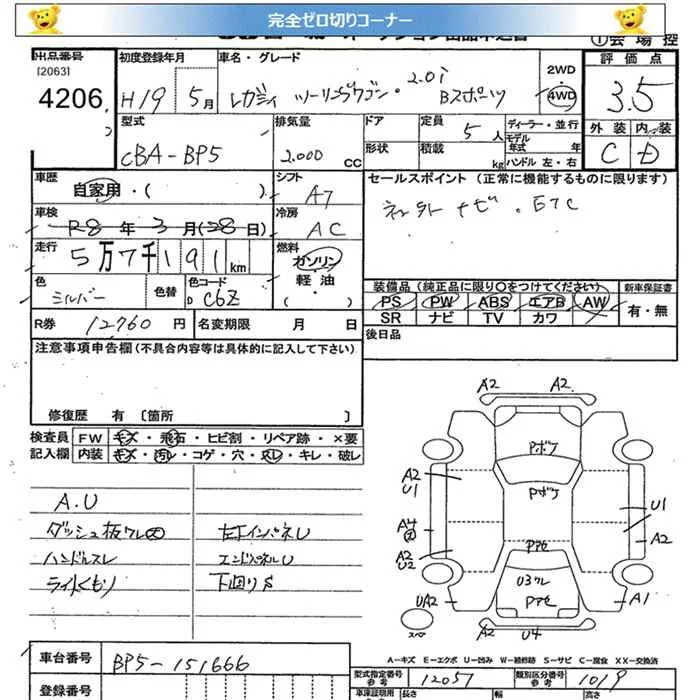 完全ゼロ切りコーナー
出品番号 初度登録年月 車名・グレード 2WD 評価点
[2063] 4206 H19 5月 レガシィ ツーリングワゴン・2.0i Bスポーツ 4WD 3.5
型式 排気量 ドア 定員 5人 ディーラー・並行 外装 内装
CBA-BP5 2.000 CC 形状 積載 kg モデル年式 年 ハンドル 左・右 C D
車歴 自家用・( ) シフト A7 セールスポイント (正常に機能するものに限ります)
車検 R8年3月(28日) 冷房 AC ナビ・ETC
走行 5万7千191km 燃料 ガソリン・軽油・( )
装備品 (純正品に限り○をつけてください) 新車保証書
色 シルバー 色替 色コード C6Z PS PW ABS エアB AW 有・無
SR ナビ TV カワ
R券 12760円 名変期限 月 日 後日品
注意事項申告欄(不具合内容等は具体的に記入して下さい)
修復歴 有 [箇所 ]
検査員 FW キズ・飛石・ヒビ割・リペア跡・×要
記入欄 内装 キズ・汚レ・コゲ・穴・スレ・キレ・破レ
A.U
ダッシュ板ワレ大 左下インパネU
ハンドルスレ エンドパネルU
ライトくもり 下回りS
A2 A2
Pボケ
A2 U1 Pボケ U1
A4 A2
A2 U2 Pアセ
U3ワレ
UA2 Pアセ A1
スペア A2 U4
A-キズ E-エクボ U-凹み W-補修跡 S-サビ C-腐食 XX-交換済
車台番号 BP5-151666 型式指定番号 参考 12051 類別区分番号 参考 1019
登録番号 車庫証明用 長さ 幅 高さ